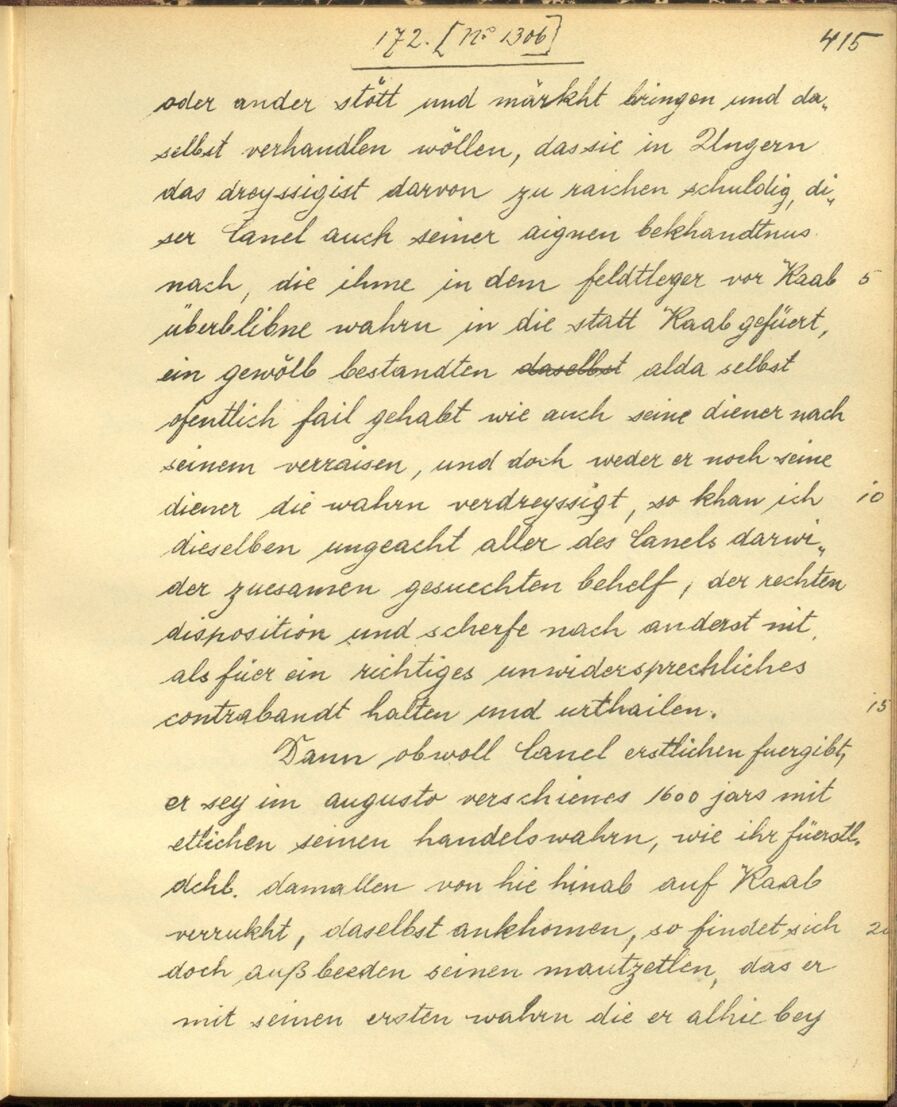 172. [No 1306]
415
oder ander stött und märkht bringen und da„
selbst verhandlen wöllen, das sie in Ungern
das dreyssigist darvon zu raichen schuldig, di„
ser Canel auch seiner aignen bekhandtnus
nach, die ihme in dem feldtleger vor Raab 5
überblibne wahrn in die statt Raab gefüert,
ein gewölb bestandten daselbst alda selbst
ofentlich fail gehabt wie auch seine diener nach
seinem verraisen, und doch weder er noch seine
diener die wahrn verdreyssigt, so khan ich 10
dieselben ungeacht aller des Canels darwi„
der zuesamen gesuechten behelf, der rechten
disposition und scherfe nach anderst nit,
als füer ein richtiges unwidersprechliches
contrabandt halten und urthailen. 15
Dann obwoll Canel erstlichen fuergibt,
er sey im augusto verschienes 1600 jars mit
etlichen seinen handelswahrn, wie ihr füerstl.
dchl. damallen von hie hinab auf Raab
verrukht, daselbst ankhomen, so findet sich 20
doch auß beeden seinen mautzetlen, das er
mit seinen ersten wahrn die er alhie bey